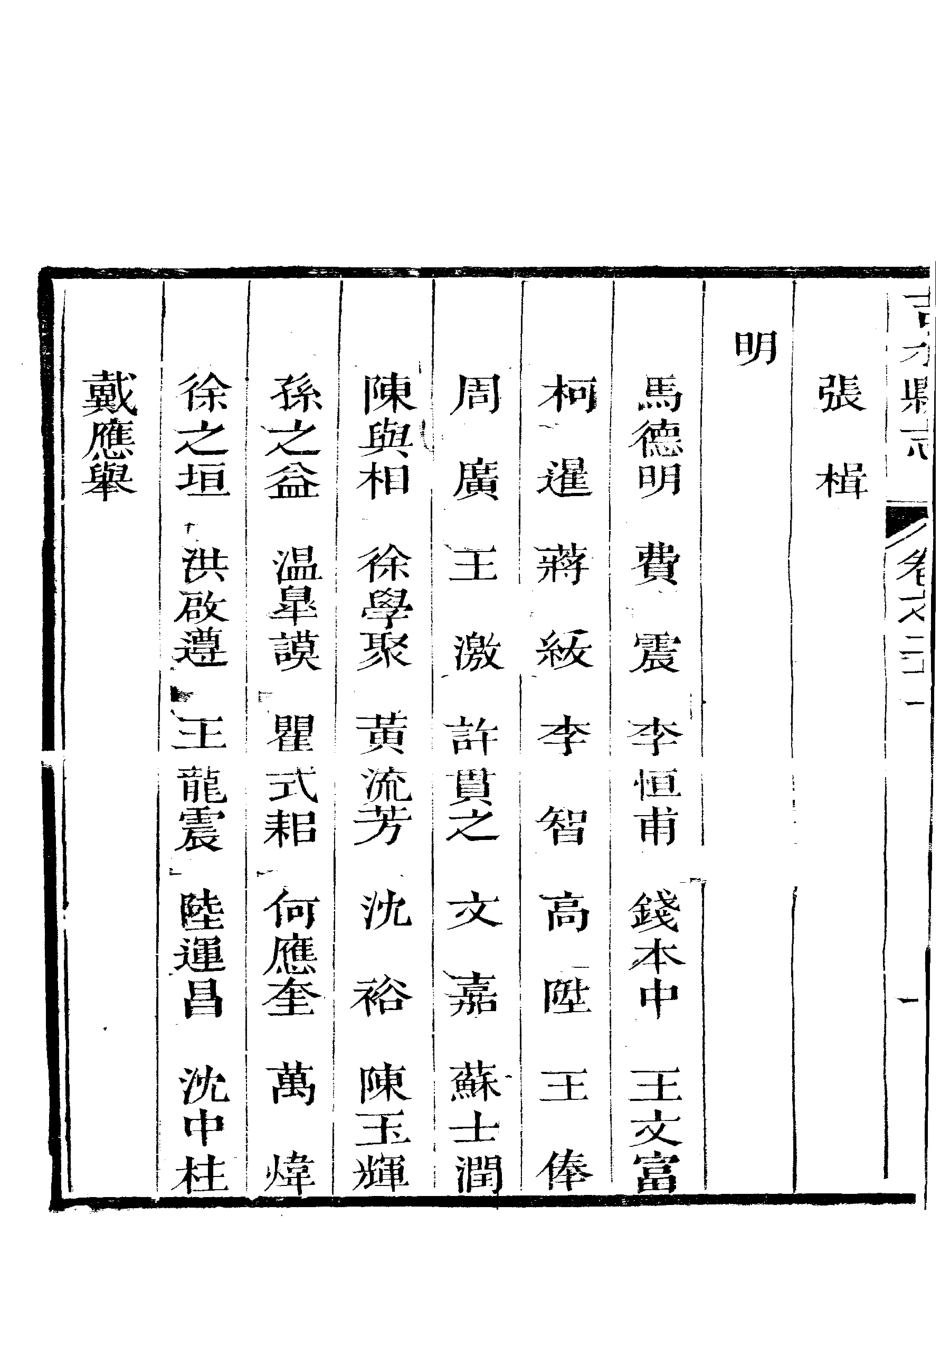 吉水縣志 卷之二十一 一
張楫
明
馬德明 費震 李恒甫 錢本中 王文富
柯暹 蔣紱 李智 高陞 王俸
周廣 王激 許貫之 文嘉 蘇士潤
陳與相 徐學聚 黃流芳 沈裕 陳玉輝
孫之益 温臯謨 瞿式耜 何應奎 萬煒
徐之垣 洪啟遵 王龍震 陸運昌 沈中柱
戴應舉